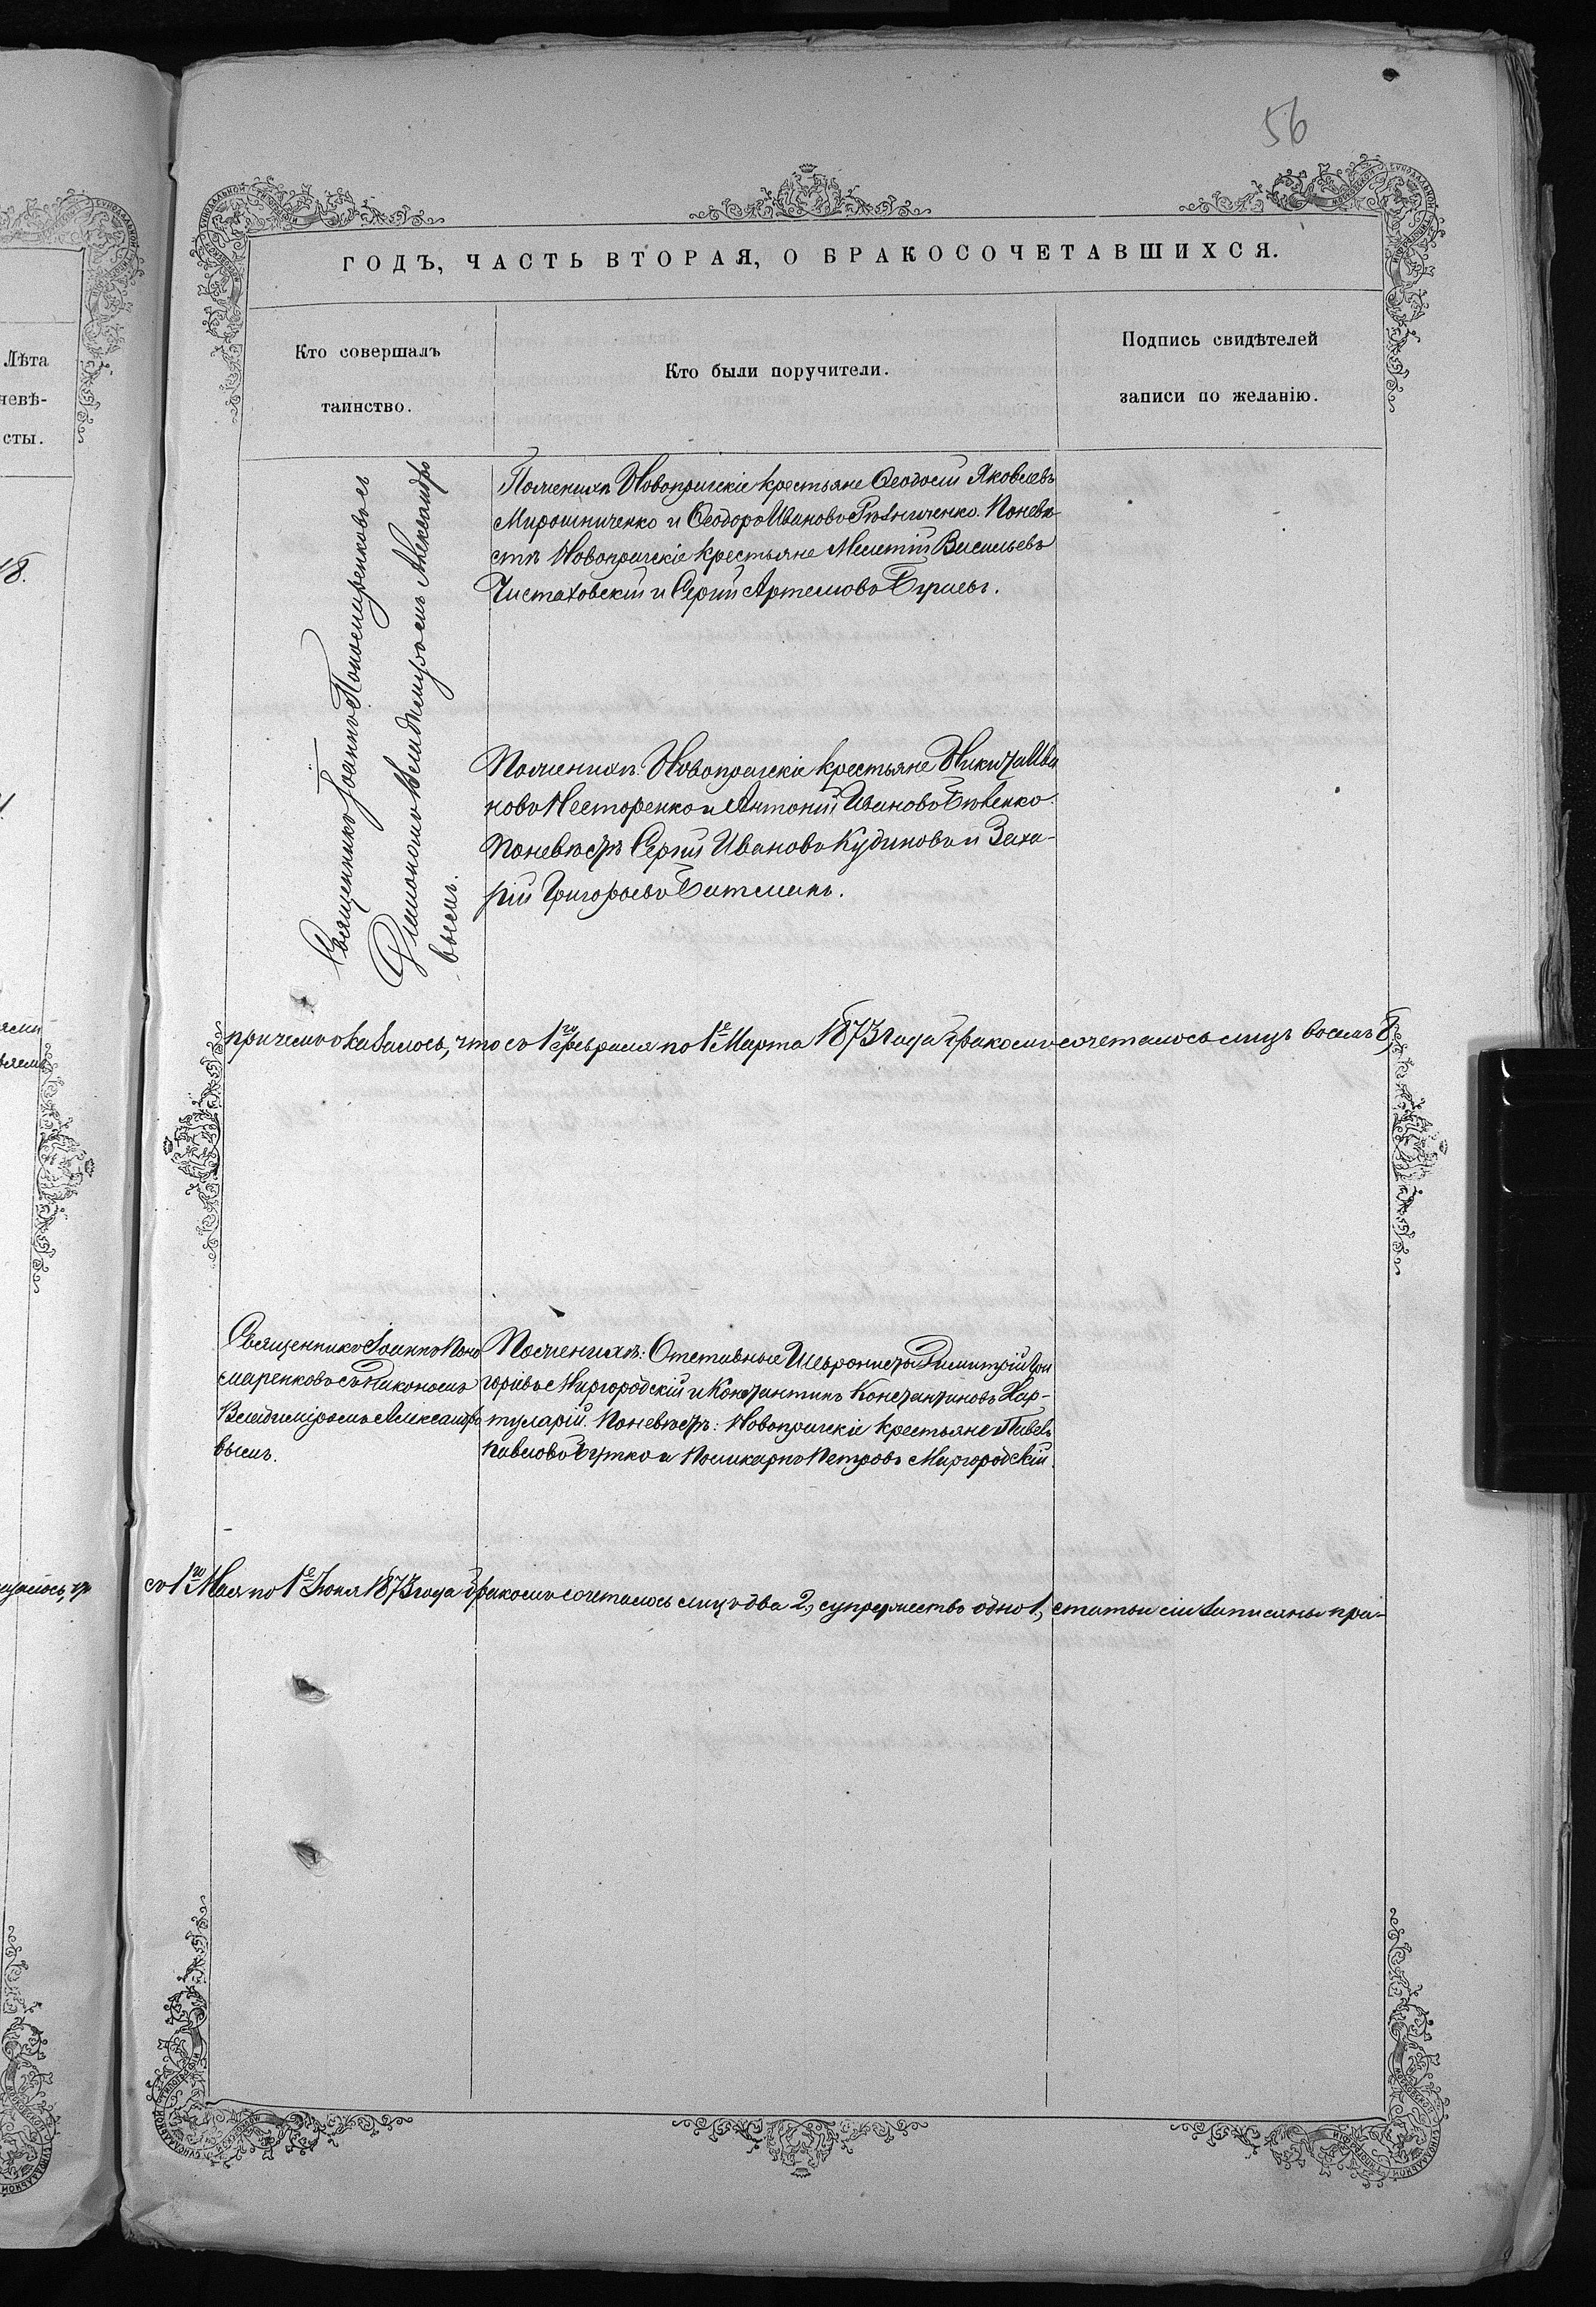 56
ГОДЪ, ЧАСТЬ ВТОРАЯ, О БРАКОСОЧЕТАВШИХСЯ.
Лѣта
невѣ-
сты.
Кто совершалъ
таинство.
Кто были поручители.
Подпись свидѣтелей
записи по желанію.
18.
Священникъ Іоаннъ Пономаренковъ съ
Діакономъ Владиміромъ Александро
вымъ.
По женихѣ Новопражскіе крестьяне Ѳеодосій Яковлевъ
Мирошниченко и Ѳеодоръ Ивановъ Рѣзниченко. По невѣ-
стѣ Новопражскіе крестьяне Мелетій Васильевъ
Чистаховскій и Сергій Артемовъ
По женихѣ: Новопражскіе крестьяне Никита Ива
новъ Несторенко и Антоній Ивановъ
По невѣстѣ Сергій Ивановъ Кудиновъ и Заха-
рій Григорьевъ
при чемъ оказалось, что съ 1го февраля по 1е Марта 1873 года бракомъ сочеталось лицъ восемь 8,
Священникъ Іоаннъ Поно
маренковъ съ Діакономъ
Владиміромъ Александро
вымъ.
По женихѣ: Отставные Димитрій Гри
горьевъ Миргородскій и Константинъ Константиновъ Хар-
туларій. По невѣстѣ: Новопражскіе крестьяне Павелъ
Павловъ Бутко и Поликарпъ Петровъ Миргородскій.
съ 1го Мая по 1е Іюня 1873 года бракомъ сочеталось лицъ два 2, супружество одно 1, статьи сіи записаны пра-